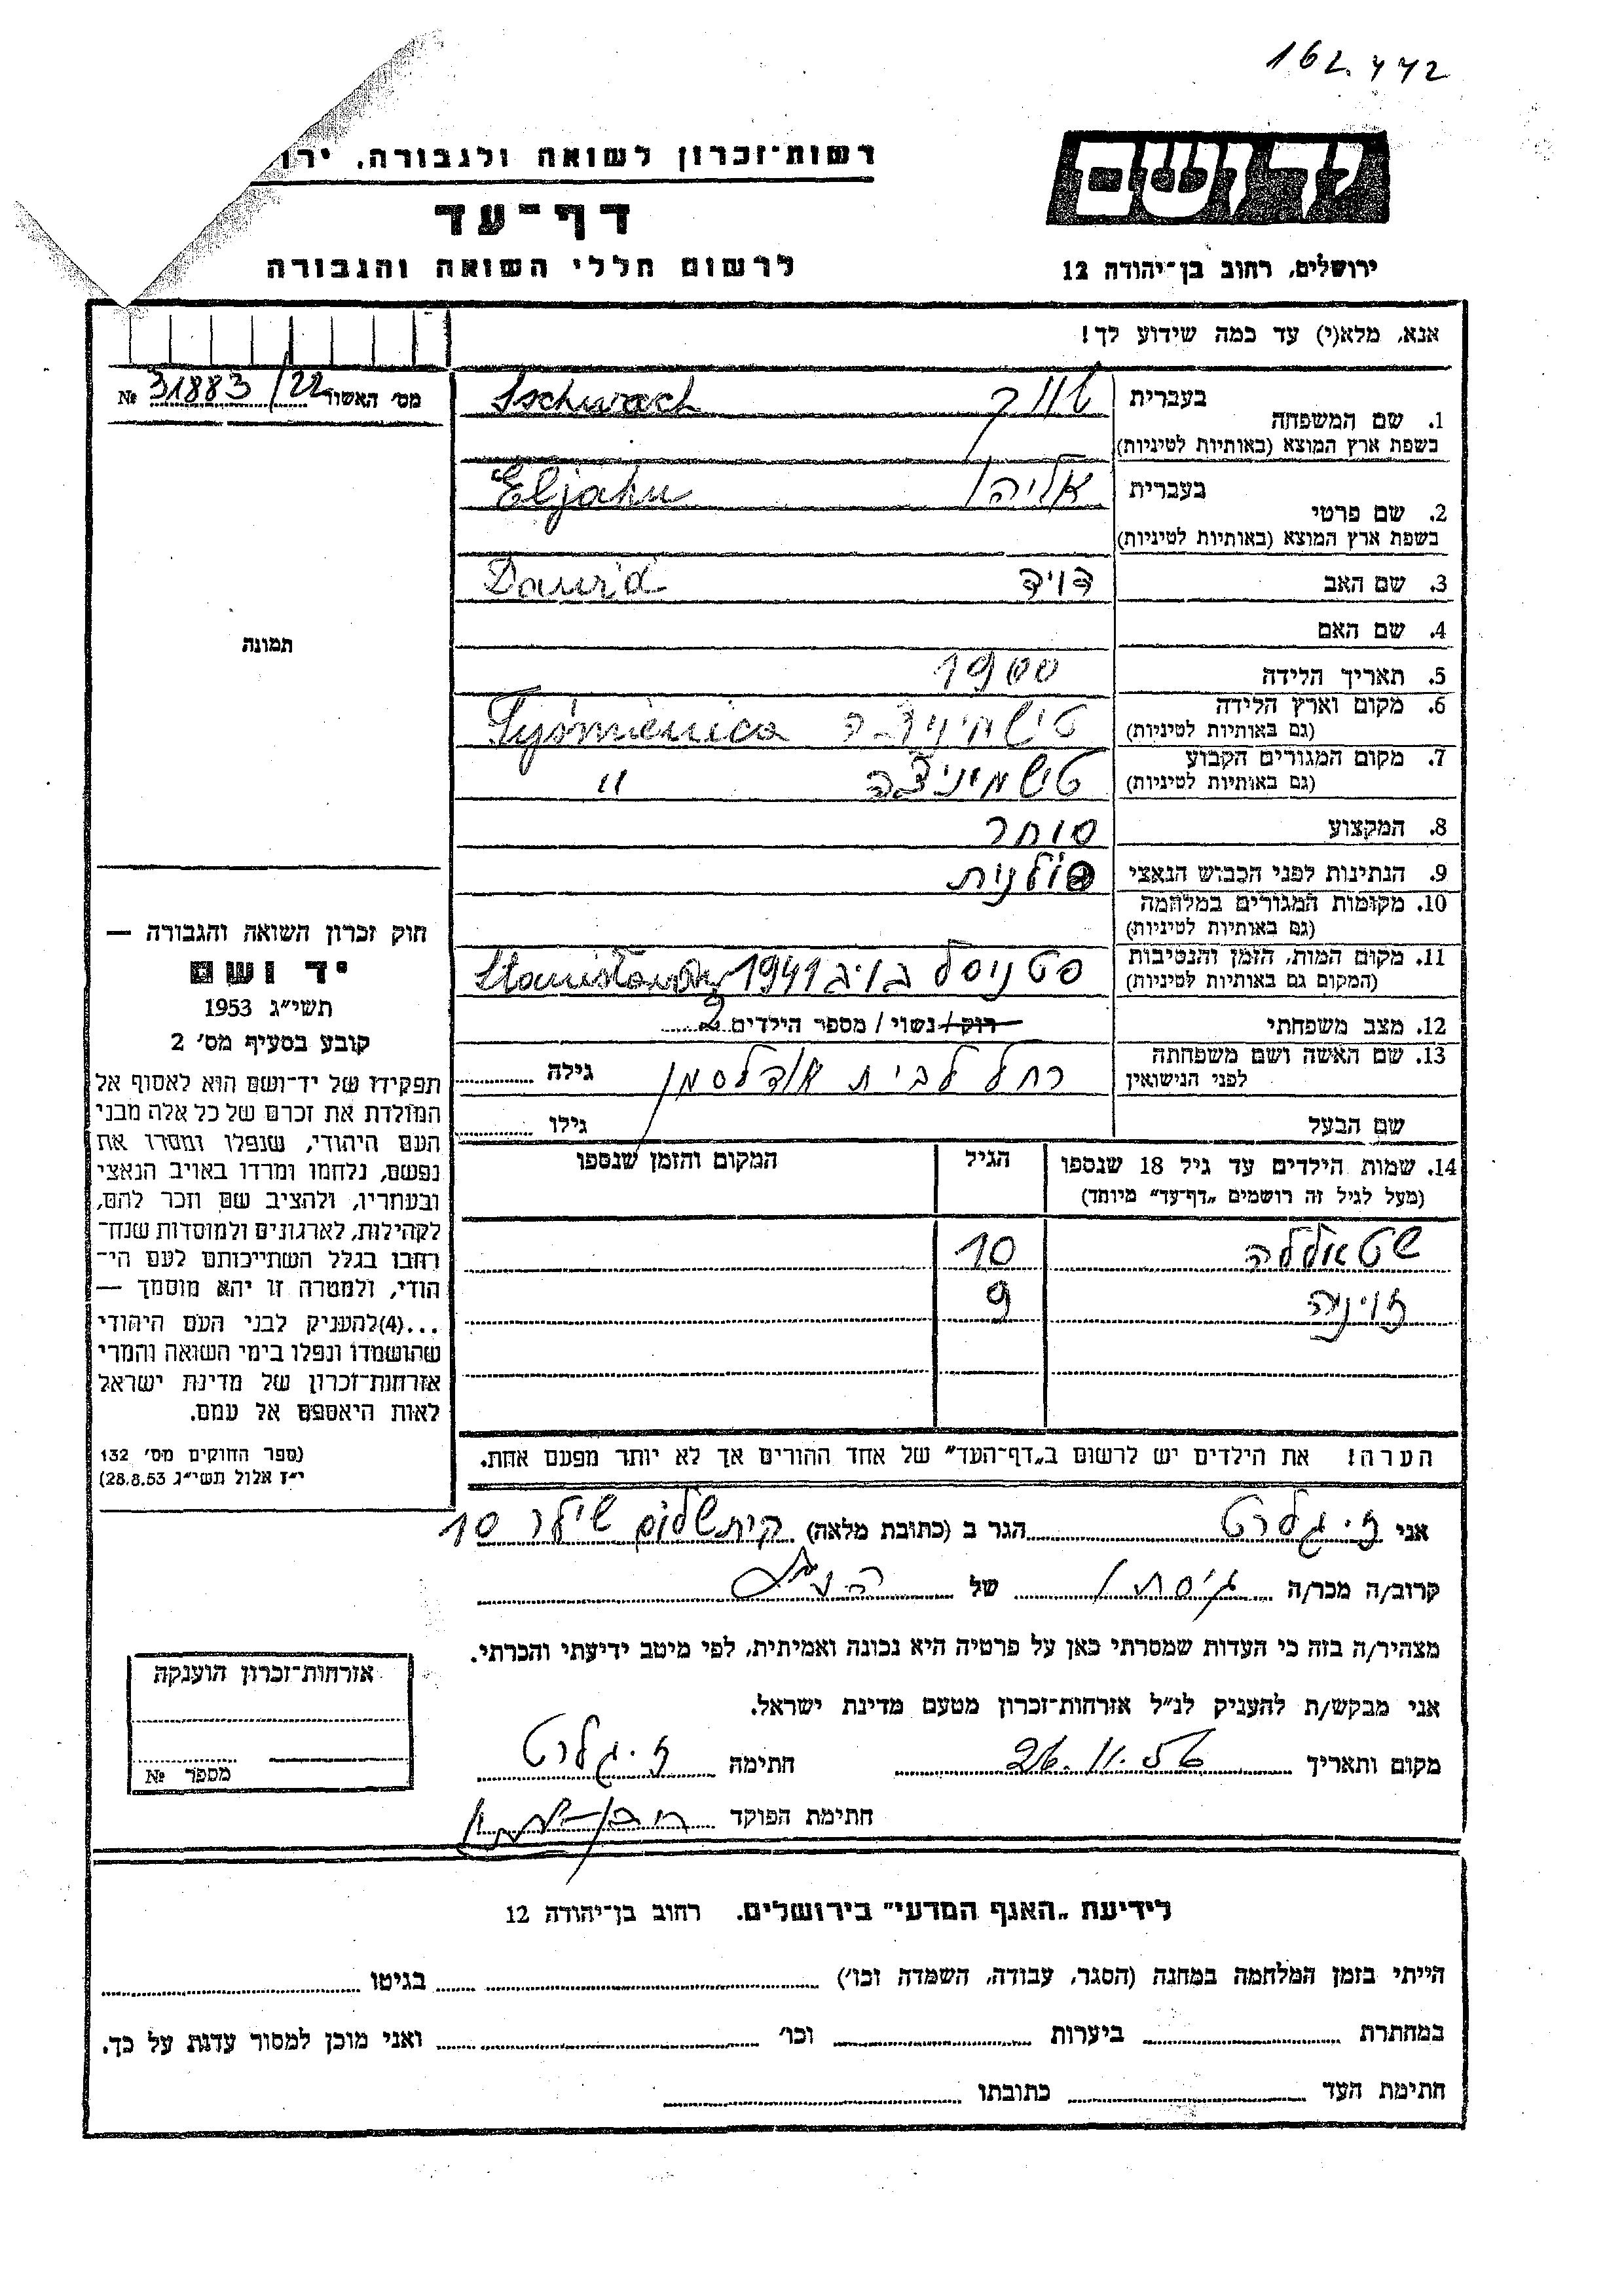 162.442
רשות־זכרון לשואה ולגבורה, ירו
יד ושם
דף־עד
לרשום חללי השואה והגבורה
ירושלים, רחוב בן־יהודה 12
אנא, מלא(י) עד כמה שידוע לך!
מס' האשור 31883/22 №
תמונה
חוק זכרון השואה והגבורה —
יד ושם
תשי"ג 1953
קובע בסעיף מס' 2
תפקידו של יד־ושם הוא לאסוף אל
המולדת את זכרם של כל אלה מבני
העם היהודי, שנפלו ומסרו את
נפשם, נלחמו ומרדו באויב הנאצי
ובעוזריו, ולהציב שם וזכר להם,
לקהילות, לארגונים ולמוסדות שנח־
רחבו בגלל השתייכותם לעם הי־
הודי, ולמטרה זו יהא מוסמך —
...(4)להעניק לבני העם היהודי
שהושמדו ונפלו בימי השואה והמרי
אזרחות־זכרון של מדינת ישראל
לאות היאספם אל עמם.
(ספר החוקים מס' 132
י"ז אלול תשי"ג 28.8.53)
1. שם המשפחה בעברית Schwach
בשפת ארץ המוצא (באותיות לטיניות)
2. שם פרטי בעברית אליהו Eljahu
בשפת ארץ המוצא (באותיות לטיניות)
3. שם האב דויד Dawid
4. שם האם
5. תאריך הלידה 1900
6. מקום וארץ הלידה (גם באותיות לטיניות) טישמיניצה Tyśmienica
7. מקום המגורים הקבוע (גם באותיות לטיניות) טישמיניצה "
8. המקצוע סוחר
9. הנתינות לפני הכבוש הנאצי פולנית
10. מקומות המגורים במלחמה (גם באותיות לטיניות)
11. מקום המות, הזמן והנסיבות (המקום גם באותיות לטיניות) 1941 Stanisławów
12. מצב משפחתי רוק/נשוי/ מספר הילדים 2
13. שם האשה ושם משפחתה לפני הנישואין רחל לבית אדלסמן גילה
שם הבעל גילו
14. שמות הילדים עד גיל 18 שנספו הגיל המקום והזמן שנספו
(מעל לגיל זה רושמים „דף־עד" מיוחד)
10
זויניה 9
הערה: את הילדים יש לרשום ב„דף־העד" של אחד ההורים אך לא יותר מפעם אחת.
אני ז. גלרט הגר ב (כתובת מלאה) קרית שלום שילר 10
קרוב/ה מכר/ה גיסתו של
מצהיר/ה בזה כי העדות שמסרתי כאן על פרטיה היא נכונה ואמיתית, לפי מיטב ידיעתי והכרתי.
אני מבקש/ת להעניק לנ"ל אזרחות־זכרון מטעם מדינת ישראל.
מקום ותאריך 26.11. חתימה ז. גלרט
חתימת הפוקד
אזרחות־זכרון הוענקה
מספר №
לידיעת „האגף המדעי" בירושלים. רחוב בן־יהודה 12
הייתי בזמן המלחמה במחנה (הסגר, עבודה, השמדה וכו') בגיטו
במחתרת ביערות וכו' ואני מוכן למסור עדות על כך.
חתימת העד כתובתו